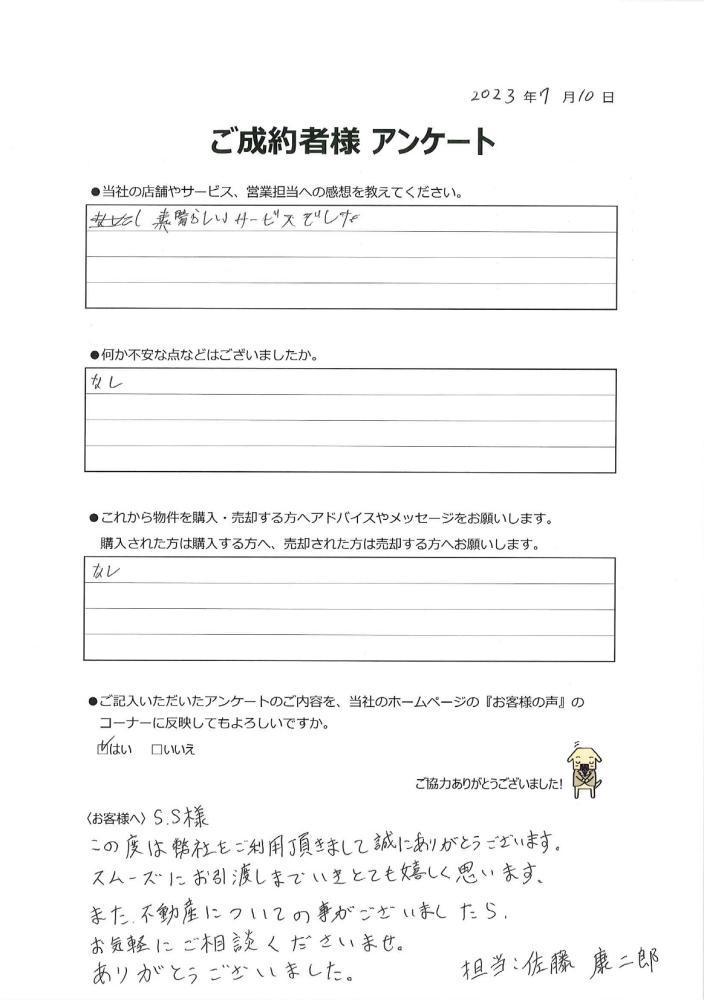 2023 年 7 月 10 日
ご成約者様 アンケート
●当社の店舗やサービス、営業担当への感想を教えてください。
素晴らしいサービスでした
●何か不安な点などはございましたか。
なし
●これから物件を購入・売却する方へアドバイスやメッセージをお願いします。
購入された方は購入する方へ、売却された方は売却する方へお願いします。
なし
●ご記入いただいたアンケートのご内容を、当社のホームページの『お客様の声』の
コーナーに反映してもよろしいですか。
☑はい □いいえ
ご協力ありがとうございました!
〈お客様へ〉 S.S様
この度は弊社をご利用頂きまして誠にありがとうございます。
スムーズにお引渡しまでいきとても嬉しく思います、
また、不動産についての事がございましたら、
お気軽にご相談くださいませ。
ありがとうございました。
担当:佐藤 康二郎